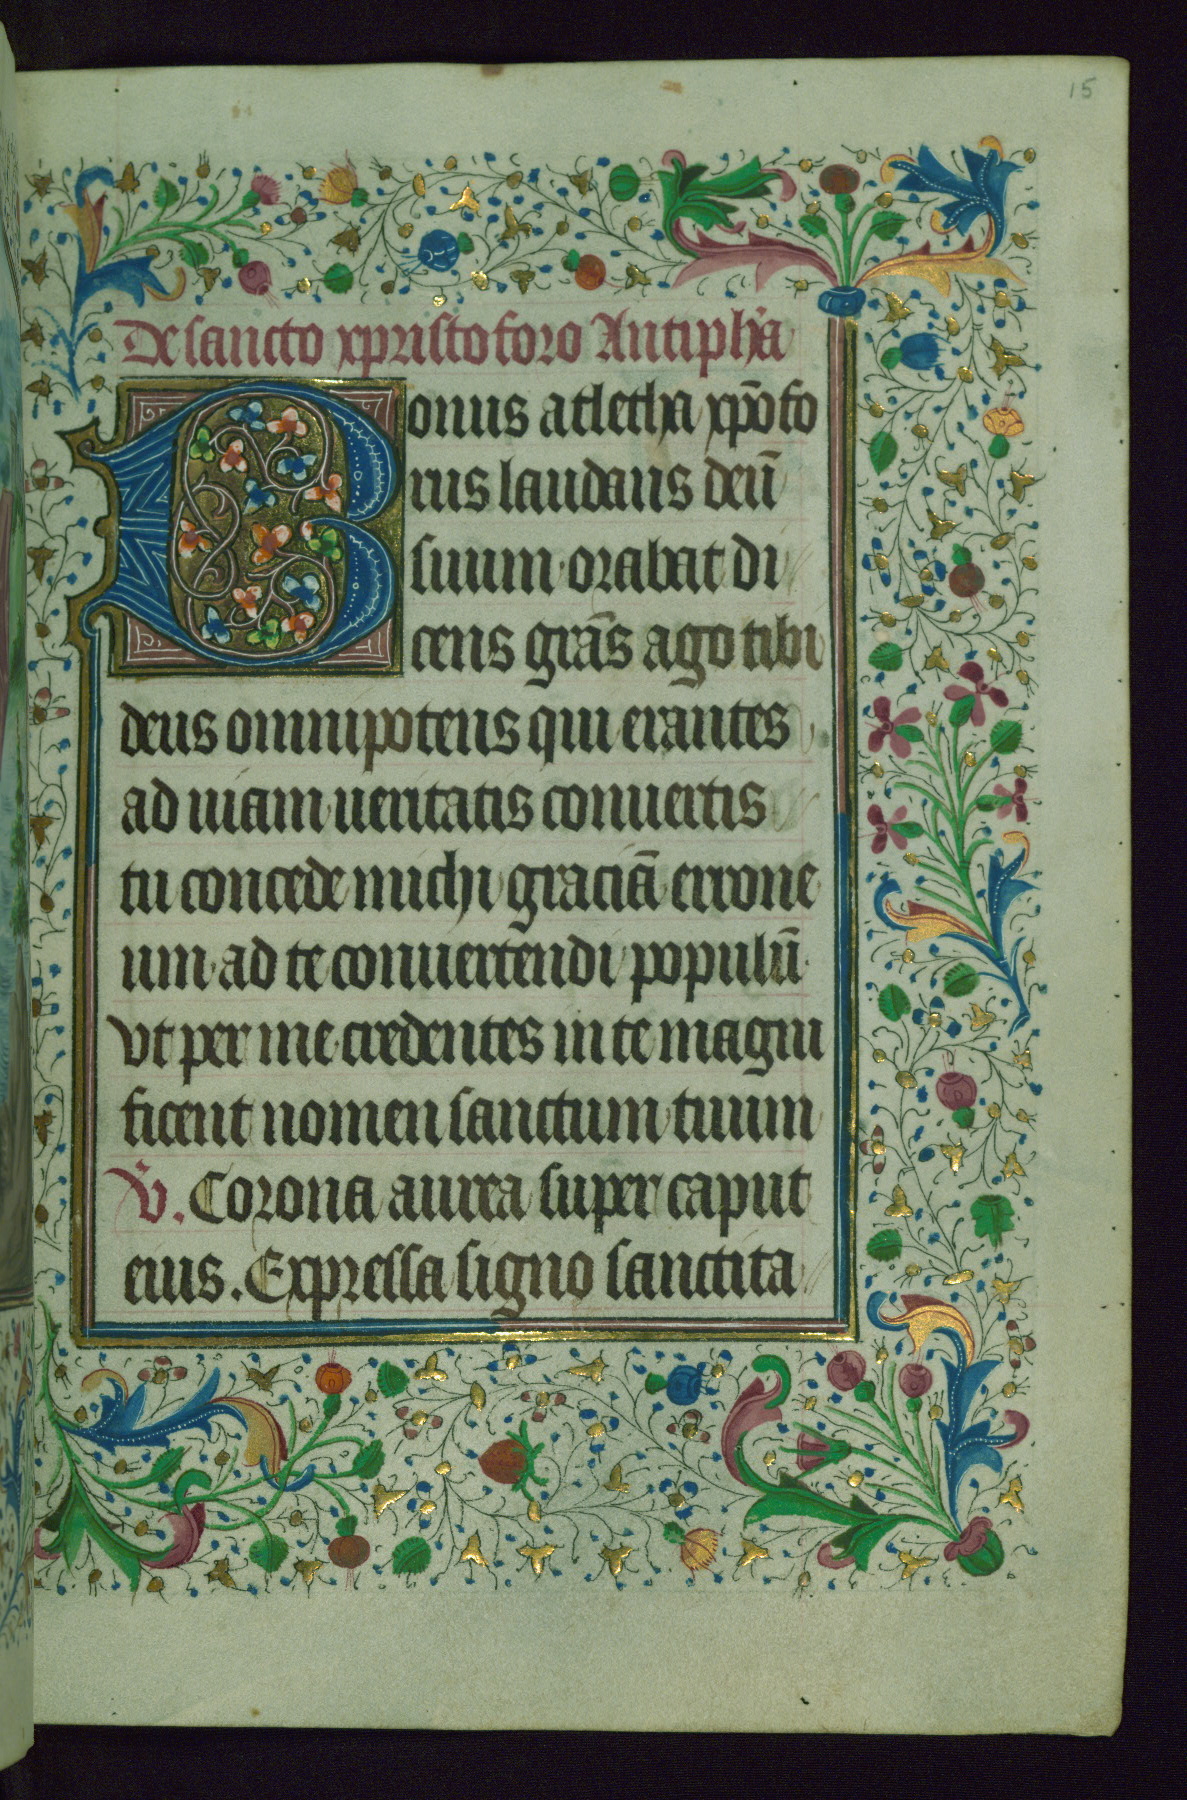 15
De sancto xpristoforo Antiph'a
Bonus atletha xp̄ofo
rus laudans deū
suum orabat di
cens grās ago tibi
deus omnipotens qui erantes
ad uiam ueritatis conuertis
tu concede michi graciā errone
um ad te conuertendi populū
vt per me credentes in te magni
ficent nomen sanctum tuum
V̄. Corona aurea super caput
eius. Expressa signo sanctita